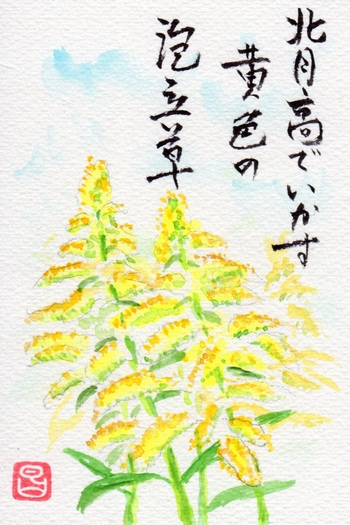 背高でいかす
黄色の
泡立草